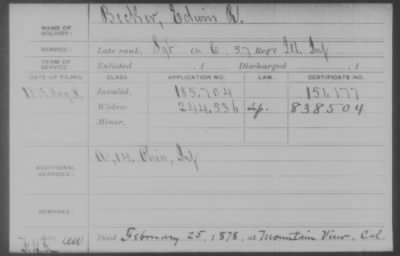 NAME OF SOLDIER: Becker, Edwin R.
SERVICE: Late rank, Sgt Co. G. 57 Reg't Ill Inf
TERM OF SERVICE: Enlisted , 1 Discharged , 1
DATE OF FILING. CLASS. APPLICATION NO. LAW. CERTIFICATE NO.
Invalid, 185.704 151.177
Widow, 244.536 838504
Minor,
ADDITIONAL SERVICES: A, 14, Ohio, Inf
REMARKS:
Died February 25, 1878, at Mountain View, Cal.